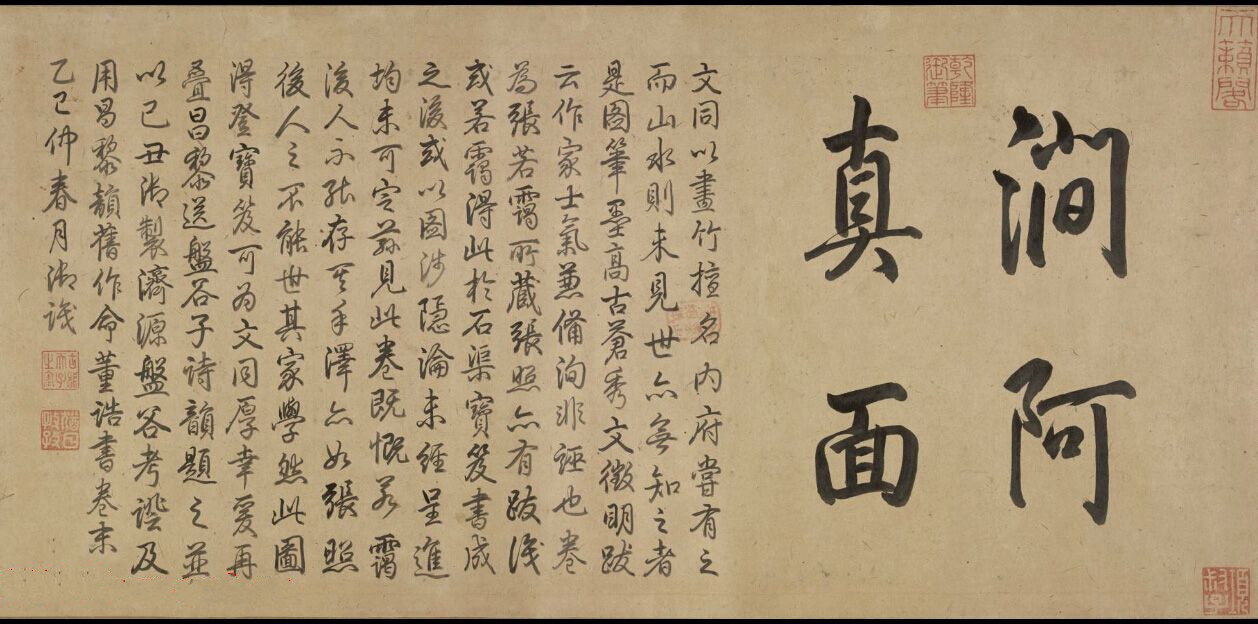 澗阿
真面
文同以畫竹擅名內府嘗有之
而山水則未見世亦無知之者
是圖筆墨高古蒼秀文徵明跋
云作家士氣兼備洵非誣也卷
為張若靄所藏張照亦有跋識
或若靄得此於石渠寶笈書成
之後或以圖涉隱淪未經呈進
均未可定茲見此卷既慨若靄
後人不能存其手澤亦如張照
後人之不能世其家學然此圖
得登寶笈可為文同厚幸爰再
疊昌黎送盤谷子詩韻題之並
以己丑御製濟源盤谷考證及
用昌黎韻舊作命董誥書卷末
乙巳仲春月御識
乾隆御筆
天籟閣
項叔子